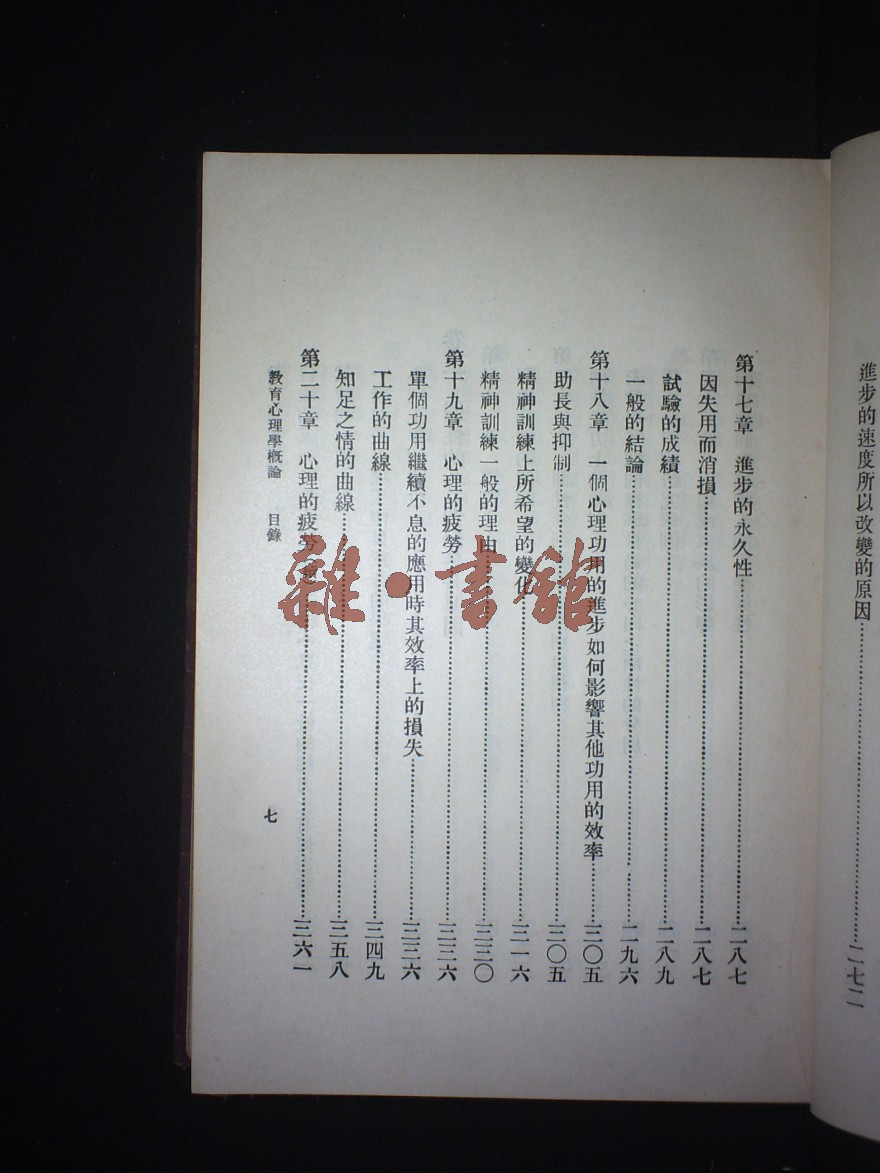 進步的速度所以改變的原因……二七二
第十七章　進步的永久性……二八七
因失用而消損……二八七
試驗的成績……二八九
一般的結論……二九六
第十八章　一個心理功用的進步如何影響其他功用的效率……三〇五
助長與抑制……三〇五
精神訓練上所希望的變化……三一六
精神訓練一般的理由……三三〇
第十九章　心理的疲勞……三三六
單個功用繼續不息的應用時其效率上的損失……三三六
工作的曲線……三四九
知足之情的曲線……三五八
第二十章　心理的疲勞……三六一
教育心理學概論　目錄
七
雜·書館